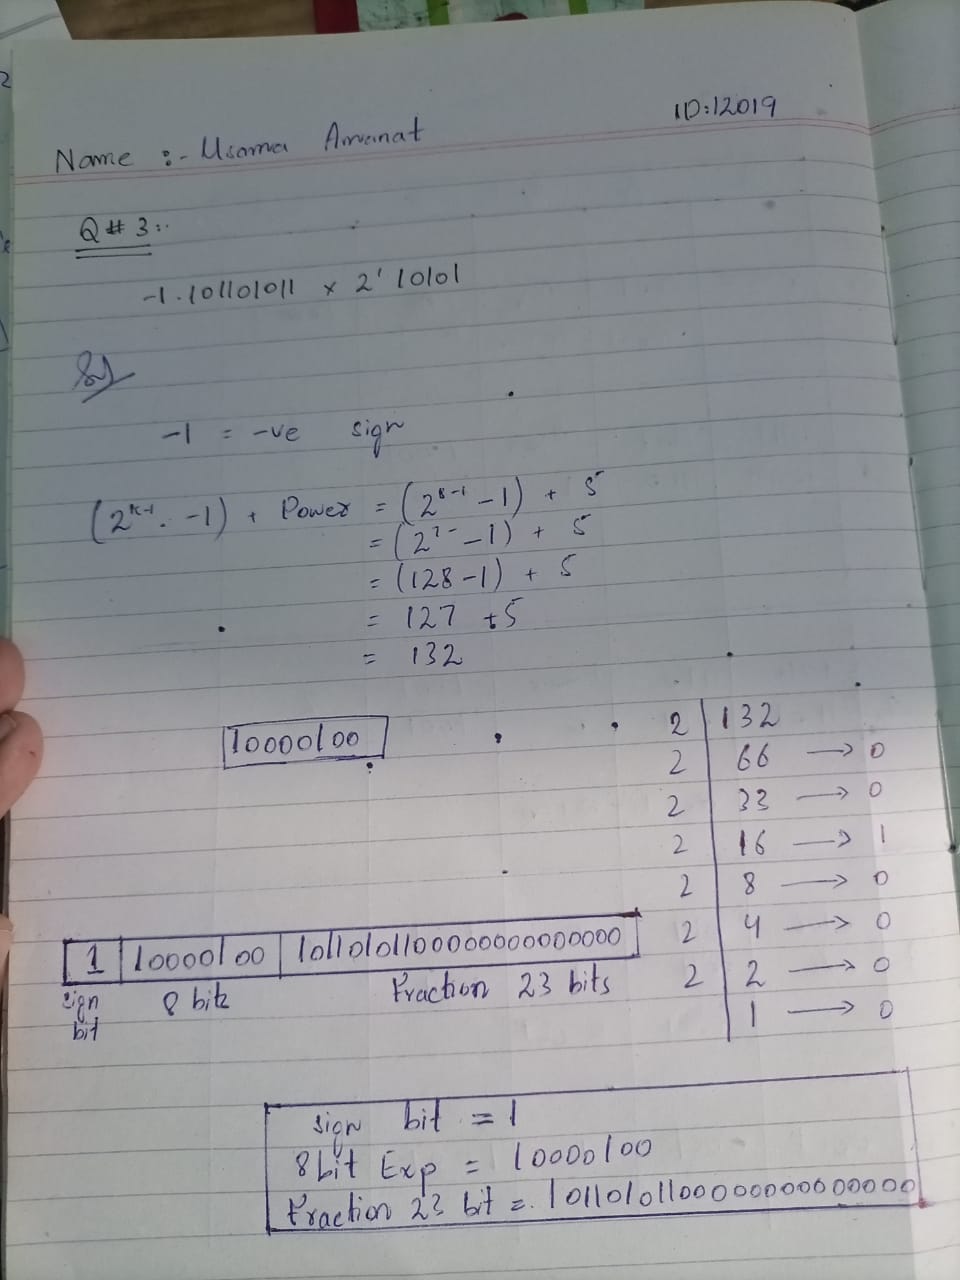 ID:12019
Name :- Usama Amanat
Q # 3:.
-1.101101011 x 2' 10101
Sol
-1 = -ve sign
(2^k-1 . -1) + Power = (2^8-1 - 1) + 5
= (2^7- - 1) + 5
= (128 - 1) + 5
= 127 + 5
= 132
10000100
2 | 132
2 | 66 → 0
2 | 33 → 0
2 | 16 → 1
2 | 8 → 0
2 | 4 → 0
2 | 2 → 0
1 → 0
1 | 10000100 | 10110101100000000000000
sign bit
8 bit
Fraction 23 bits
sign bit = 1
8 bit Exp = 10000100
Fraction 23 bit = 10110101100000000000000